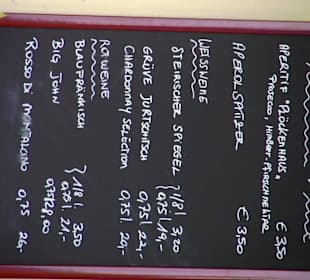 APERITIF "GLÖCKENHAUS" € 3,50
PROSECCO, HIMBEER, PFIRSCHNEKTAR
APEROL SPRITZER € 3,50
WEISSWEINE
STEIRISCHER SPIEGEL 1/8 l 3,20
0,75 l 19,-
GRÜVE JURTSCHITSCH 0,75 l 22,-
CHARDONNAY SELECTION 0,75 l 20,-
ROTWEINE
BLAUFRÄNKISCH 1/8 l. 3,50
0,75 l. 21,-
BIG JOHN 0,75 28,00
ROSSO DI MONTALCINO 0,75 26,-